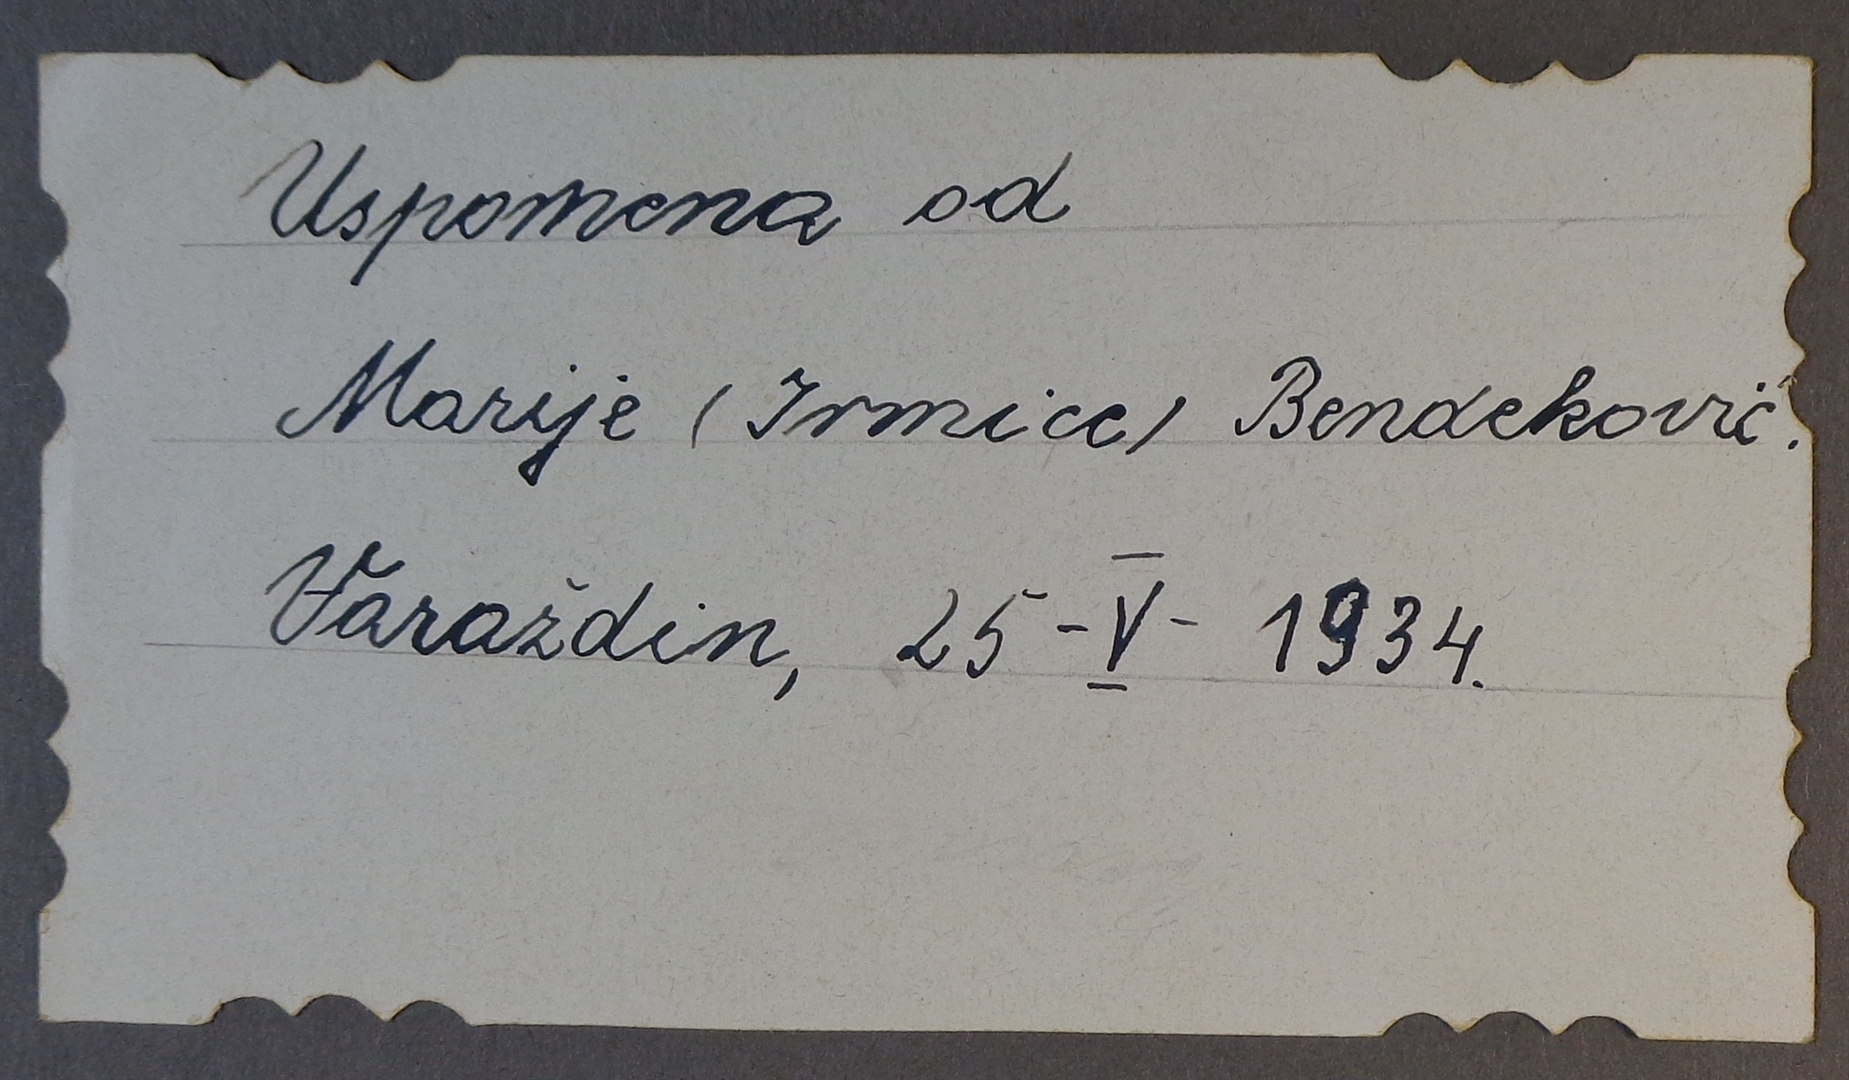 Uspomena od
Marije (Irmice) Bendeković.
Varaždin, 25-V- 1934.